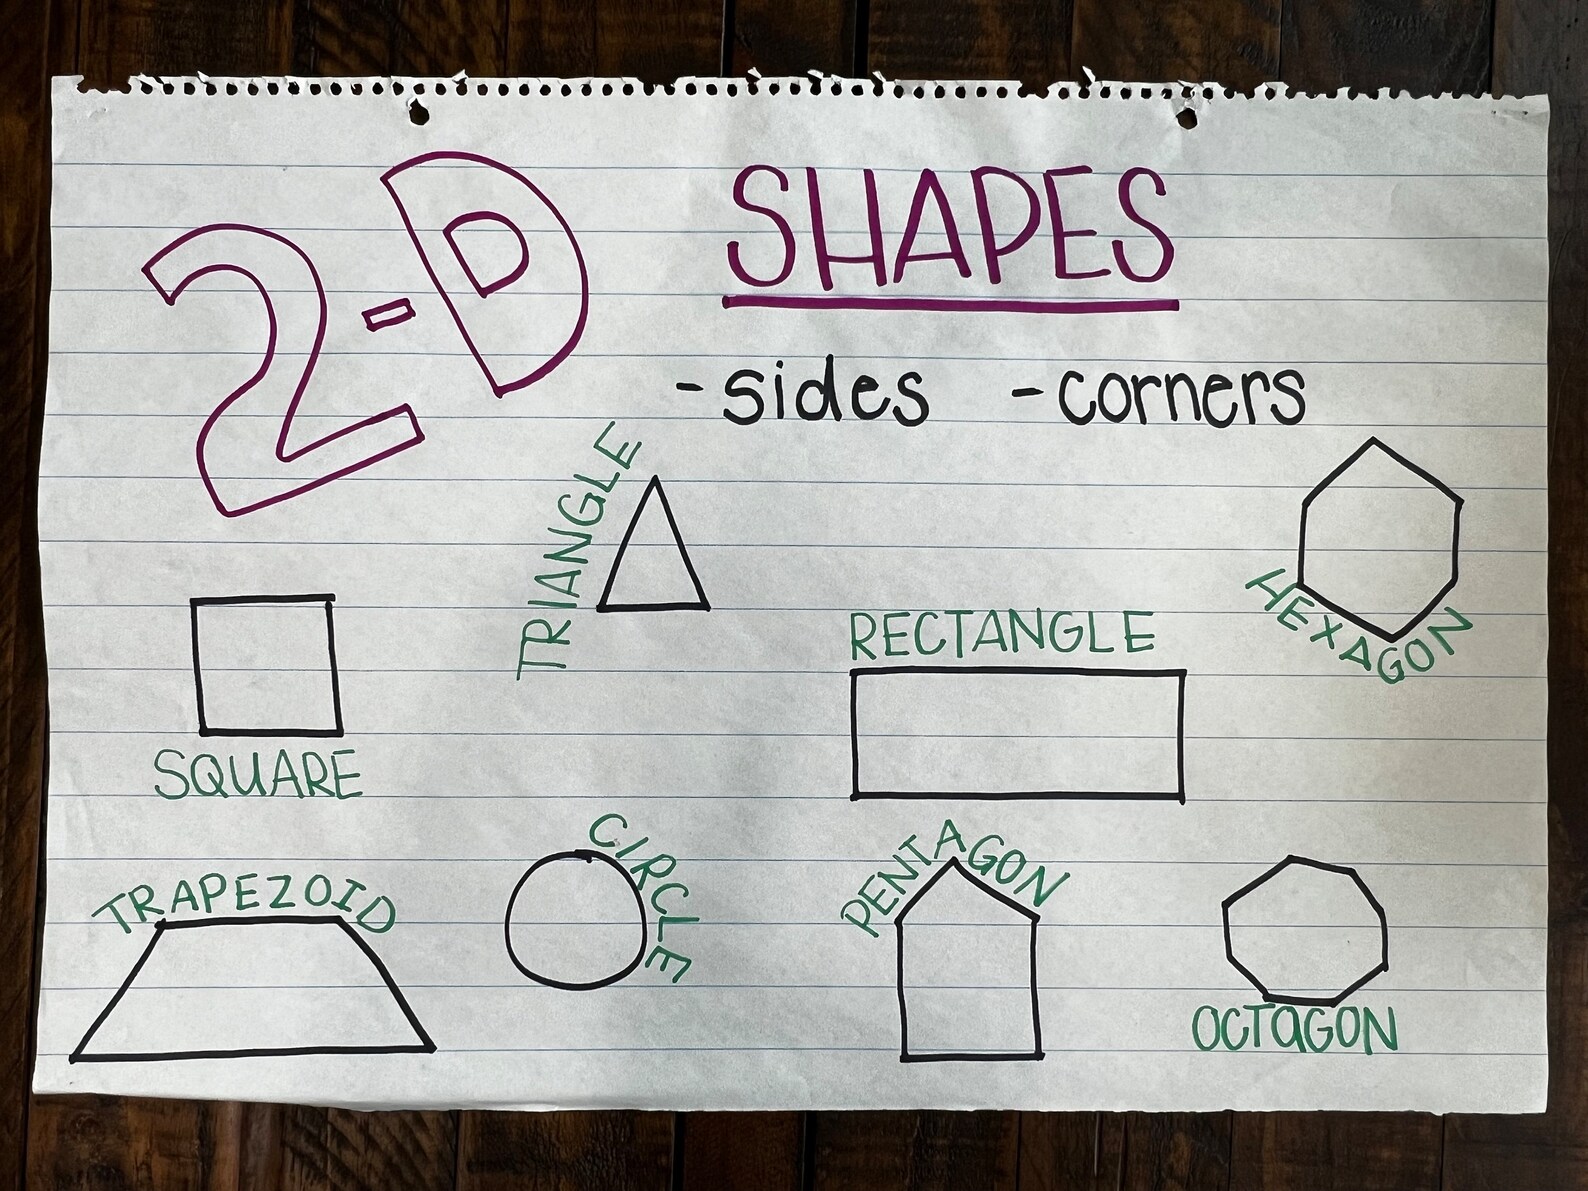 2-D SHAPES
-sides -corners
TRIANGLE
HEXAGON
SQUARE
RECTANGLE
TRAPEZOID
CIRCLE
PENTAGON
OCTAGON